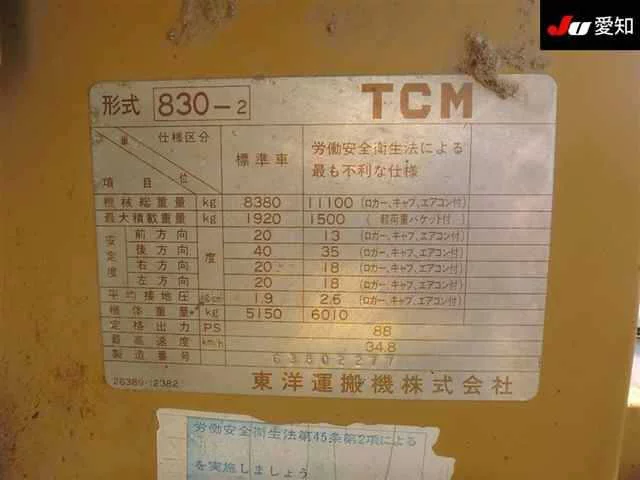 JU 愛知
形式 830-2 TCM
単位 仕様区分 項目 標準車 労働安全衛生法による
最も不利な仕様
機械総重量 kg 8380 11100 (ロガー、キャブ、エアコン付)
最大積載重量 kg 1920 1500 (軽荷重バケット付)
安定度 前方向 度 20 13 (ロガー、キャブ、エアコン付)
後方向 40 35 (ロガー、キャブ、エアコン付)
右方向 20 18 (ロガー、キャブ、エアコン付)
左方向 20 18 (ロガー、キャブ、エアコン付)
平均接地圧 1.9 2.6 (ロガー、キャブ、エアコン付)
機体重量 kg 5150 6010
定格出力 PS 88
最高速度 km/h 34.8
製造番号 63802277
26389-12382 東洋運搬機株式会社
労働安全衛生法第45条第2項による
を実施しましょう